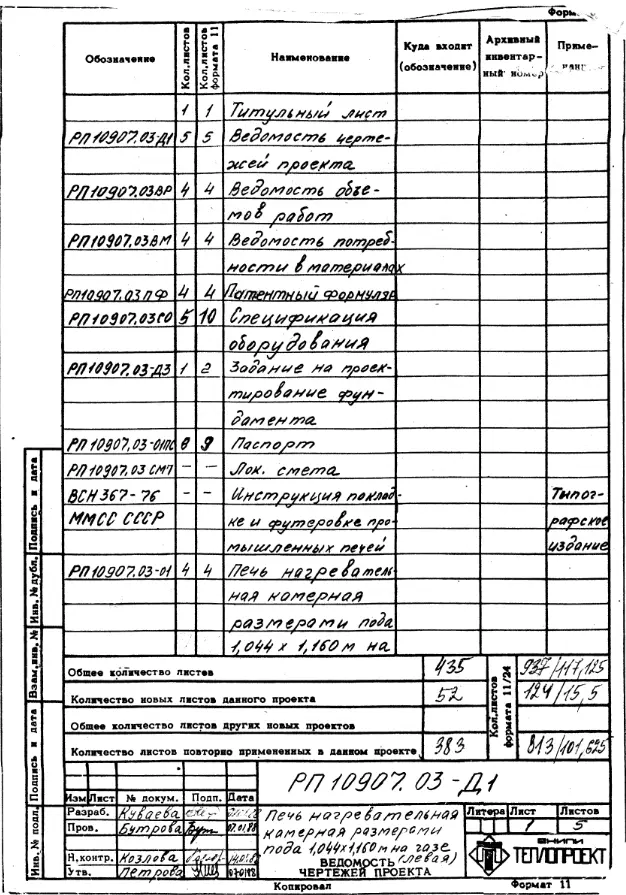 Обозначение Кол.листов Кол.листов формата 11 Наименование Куда входит (обозначение) Архивный инвентар- ный номер Приме-
1 1 Титульный лист
РП10907.03-Д1 5 5 Ведомость черте-
жей проекта
РП10907.03ВР 4 4 Ведомость объе-
мов работ
РП10907.03ВМ 4 4 Ведомость потреб-
ности в материалах
РП10907.03ПФ 4 4 Патентный формуляр
РП10907.03СО 5 10 Спецификация
оборудования
РП10907.03-Д3 1 2 Задание на проек-
тирование фун-
дамента
РП10907.03-01ПС 8 9 Паспорт
РП10907.03СМ1 – – Лок. смета
ВСН367-76 – – Инструкция поклад- Типог-
ММСС СССР ке и футеровке про- рафское
мышленных печей издание
РП10907.03-01 4 4 Печь нагреватель-
ная камерная
размерами пода
1,044 х 1,160м на
Общее количество листов 435 Кол.листов формата 11/24 937/117,125
Количество новых листов данного проекта 52 124/15,5
Общее количество листов других новых проектов
Количество листов повторно примененных в данном проекте 383 813/101,625
РП 10907.03-Д1
Изм Лист № докум. Подп. Дата
Разраб. Куваева
Пров. Бутрова
Н.контр. Козлова
Утв. Петрова
Печь нагревательная
камерная размерами
пода 1,044х1,160м на газе
(левая)
ВЕДОМОСТЬ
ЧЕРТЕЖЕЙ ПРОЕКТА
Литера Лист Листов
1 5
ВНИПИ
ТЕПЛОПРОЕКТ
Копировал Формат 11
Инв.№ подл. Подпись и дата Взам.инв.№ Инв.№ дубл. Подпись и дата